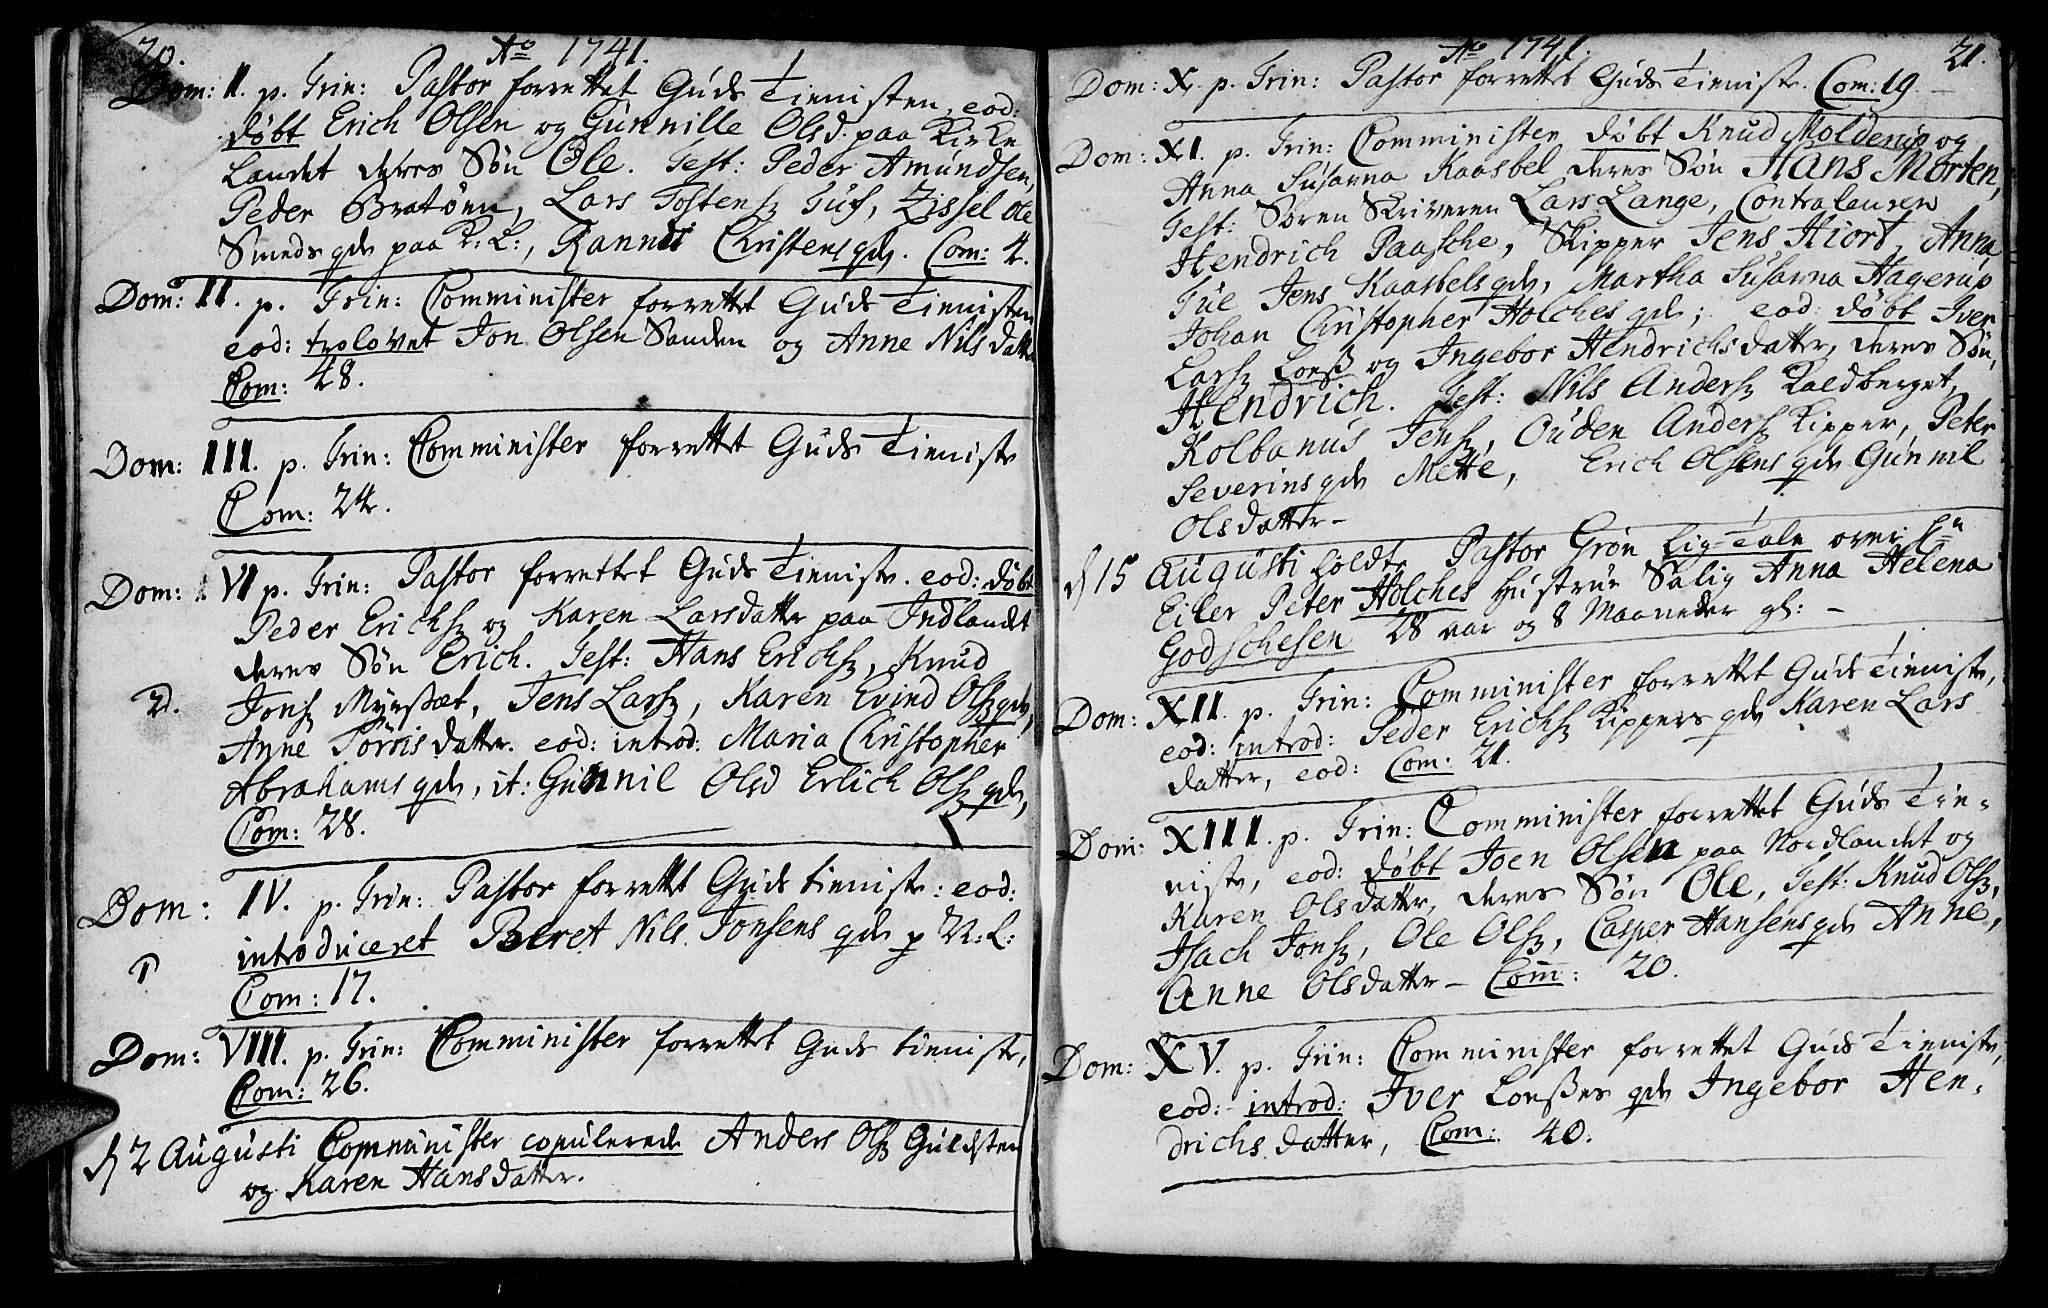 20. Ao 1741.
Dom: II. p. Trin: Pastor forrettet Guds Tienisten, eod:
døbt Erich Olsen og Gunnille Olsd. paa Kirke
Landet deres Søn Ole. Test: Peder Amundsen,
Peder Bratøen, Lars Tostens, Zissel Ole
Smeds qde paa K: L:, Rannei Christens qde. Com: 4.
Dom: II. p. Trin: Comminister forrettet Guds Tienisten
eod: trolovet Jon Olsen Sanden og Anne Nils datter
Com: 48.
Dom: III. p. Trin: Comminister forrettet Guds Tieniste
Com: 24.
Dom: VI p. Trin: Pastor forrettet Guds Tieniste. eod: døbt
Peder Erichs: og Karen Larsdatter paa Indlandet
deres Søn Erich. Test: Hans Erichs:, Knud
2. Jons: Myrsæt, Jens Lars:, Karen Evind Ols: qde,
Anne datter. eod: introd: Maria Christopher
Abrahams qde, it: Gunnil Olsd Erlich Ols: qde,
Com: 28.
Dom: IV. p. Trin: Pastor forrettet Guds tieniste: eod:
1 introduceret Beret Nils Jonsens qde p N: L:
Com: 17.
Dom: VIII. p. Trin: Comminister forrettet Guds tieniste,
Com: 26.
d 2 Augusti Comminister copulerede Anders Ols: Guldsten
og Karen Hans datter.
Ao 1741. 21.
Dom: X. p. Trin: Pastor forrettet Guds Tieniste. Com: 19 -
Dom: XI. p. Trin: Comminister døbt Knud Molderup og
Anna Susanna Kaasbel deres Søn Hans Morten,
Test: Soren Skriveren Lars Lange, Contraleuren
Hendrich Paasche, Skipper Jens Hiort, Anna
Jens Kaasbels qde, Martha Susanna Hagerup
Johan Christopher Holches qde; eod: døbt Iver
Lars: Lorß og Ingebor Hendrichs datter, deres Søn,
Hendrich. Test: Nils Anders: Kaldberget,
Kolbanus Jens:, Ouden Anders: Kipper, Peter
Severins qde Mette, Erich Olsens qde Gunnil
Olsdatter -
d 15 Augusti holdte Pastor Grøn Lig-Tale over Hn
Eiler Peter Holches Hustrue Salig Anna Helena
Godschesen 28 aar og 8 Maaneder gl: -
Dom: XII. p. Trin: Comminister forrettet Guds Tieniste,
eod: introd: Peder Erichs: Kippers qde Karen Lars
datter, eod: Com: 21.
Dom: XIII. p. Trin: Comminister forrettet Guds Tie-
niste, eod: døbt Joen Olsen paa Nordlandet og
Karen Olsdatter, deres Søn Ole, Test: Knud Ols:,
Isach Jons:, Ole Ols:, Casper Hansens qde Anne,
Anne Olsdatter - Com: 20.
Dom: XV. p. Trin: Comminister forrettet Guds Tieniste,
eod: introd: Iver Lorßes qde Ingebor Hen-
drichs datter, Com: 40.